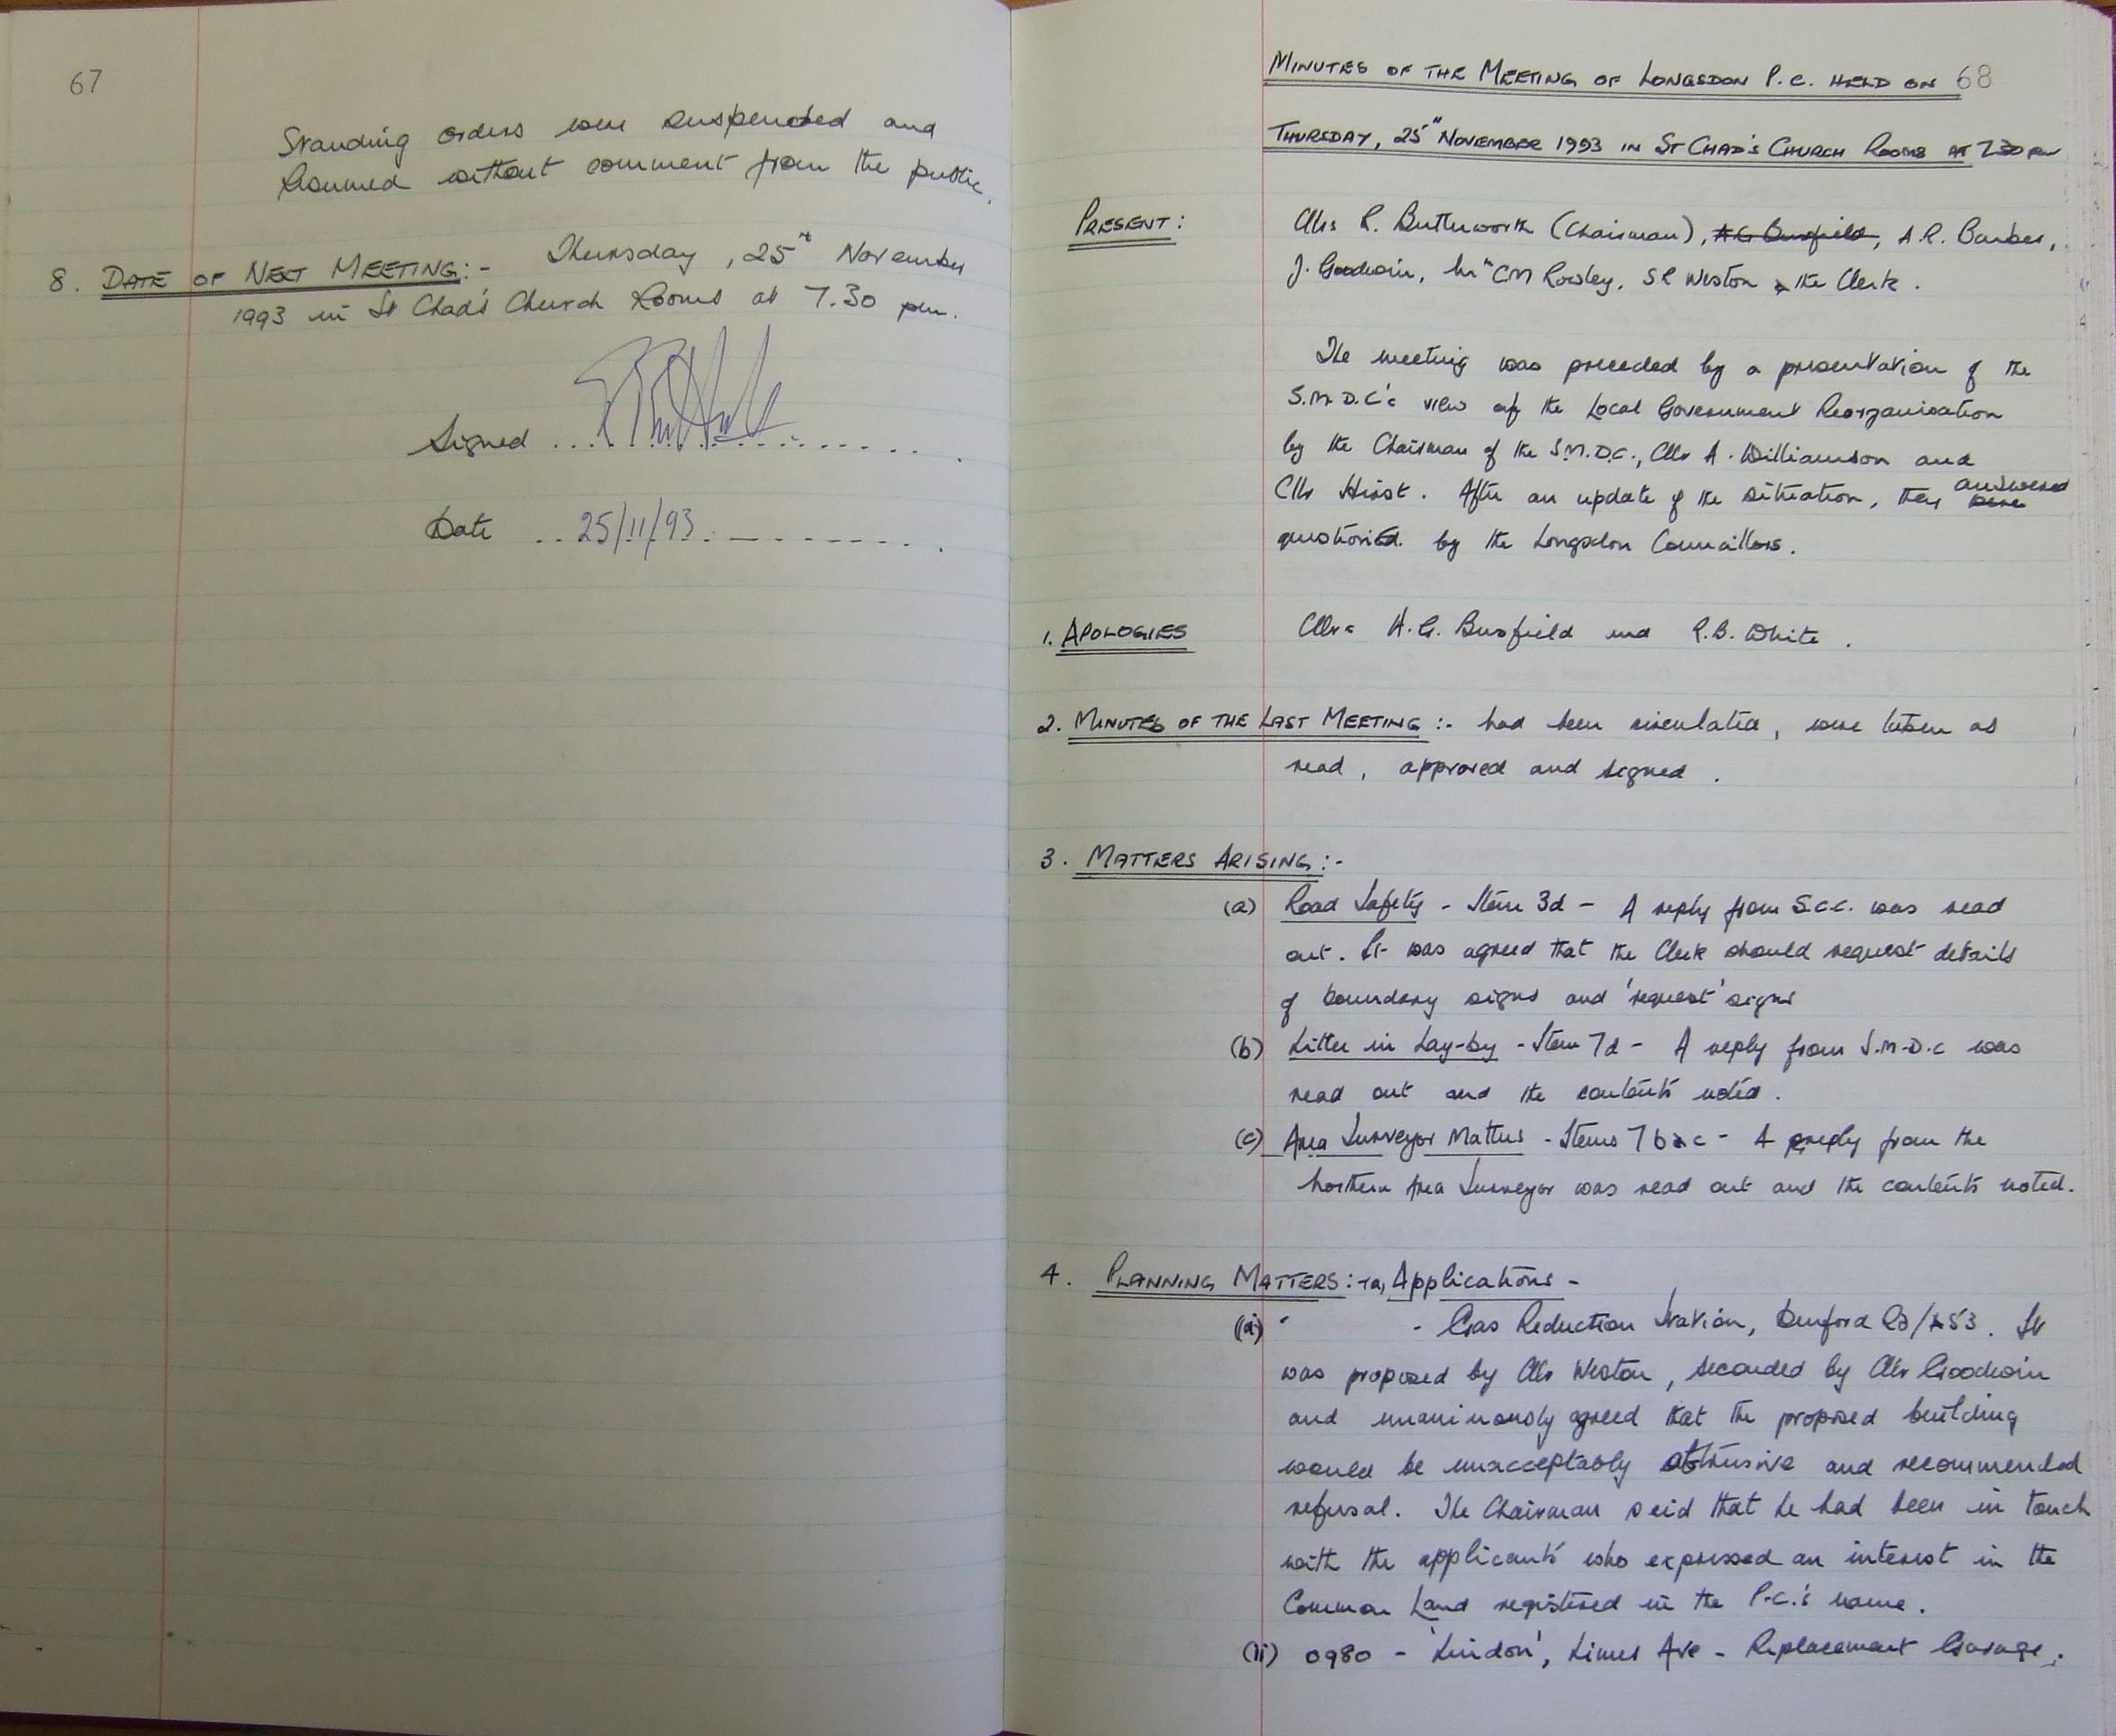 67
Standing orders were suspended and
Resumed without comment from the public.
8. DATE OF NEXT MEETING:- Thursday, 25th November
1993 in St Chad's Church Rooms at 7.30 pm.
Signed
Date 25/11/93
68
MINUTES OF THE MEETING OF LONGSDON P.C. HELD ON
THURSDAY, 25th NOVEMBER 1993 IN ST CHAD'S CHURCH ROOMS AT 7.30 pm
PRESENT: Cllrs R. Butterworth (Chairman), H G Busfield, A.R. Barber,
J. Goodwin, Mrs CM Rowley, SR Weston & the Clerk.
The meeting was preceded by a presentation of the
S.M.D.C's view of the Local Government Reorganisation
by the Chairman of the S.M.D.C., Cllr A. Williamson and
Cllr Hirst. After an update of the situation, they answered were
questions by the Longsdon Councillors.
1. APOLOGIES Cllrs H.G. Busfield and R.B. White.
2. MINUTES OF THE LAST MEETING:- had been circulated, were taken as
read, approved and signed.
3. MATTERS ARISING:-
(a) Road Safety - Item 3d - A reply from S.C.C. was read
out. It was agreed that the Clerk should request details
of boundary signs and 'request' signs
(b) Litter in Lay-by - Item 7d - A reply from S.M.D.C was
read out and the contents noted.
(c) Area Surveyor Matters - Items 7b & c - A reply from the
Northern Area Surveyor was read out and the contents noted.
4. PLANNING MATTERS:- (a) Applications -
(i) - Gas Reduction Station, Denford Rd/A53. It
was proposed by Cllr Weston, seconded by Cllr Goodwin
and unanimously agreed that the proposed building
would be unacceptably obtrusive and recommended
refusal. The Chairman said that he had been in touch
with the applicants who expressed an interest in the
Common Land registered in the P.C.'s name.
(ii) 0980 - 'Lindon', Limes Ave - Replacement Garage.